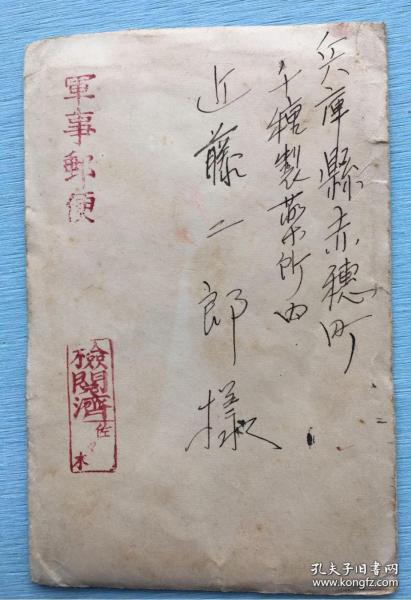 兵庫縣赤穂町
千種製薬所内
近藤二郎様
軍事郵便
検閲濟
佐々木
孔夫子旧书网
www.kongfz.com